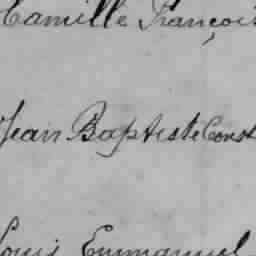 Camille François
Jean Baptiste Const
Louis Emmanuel